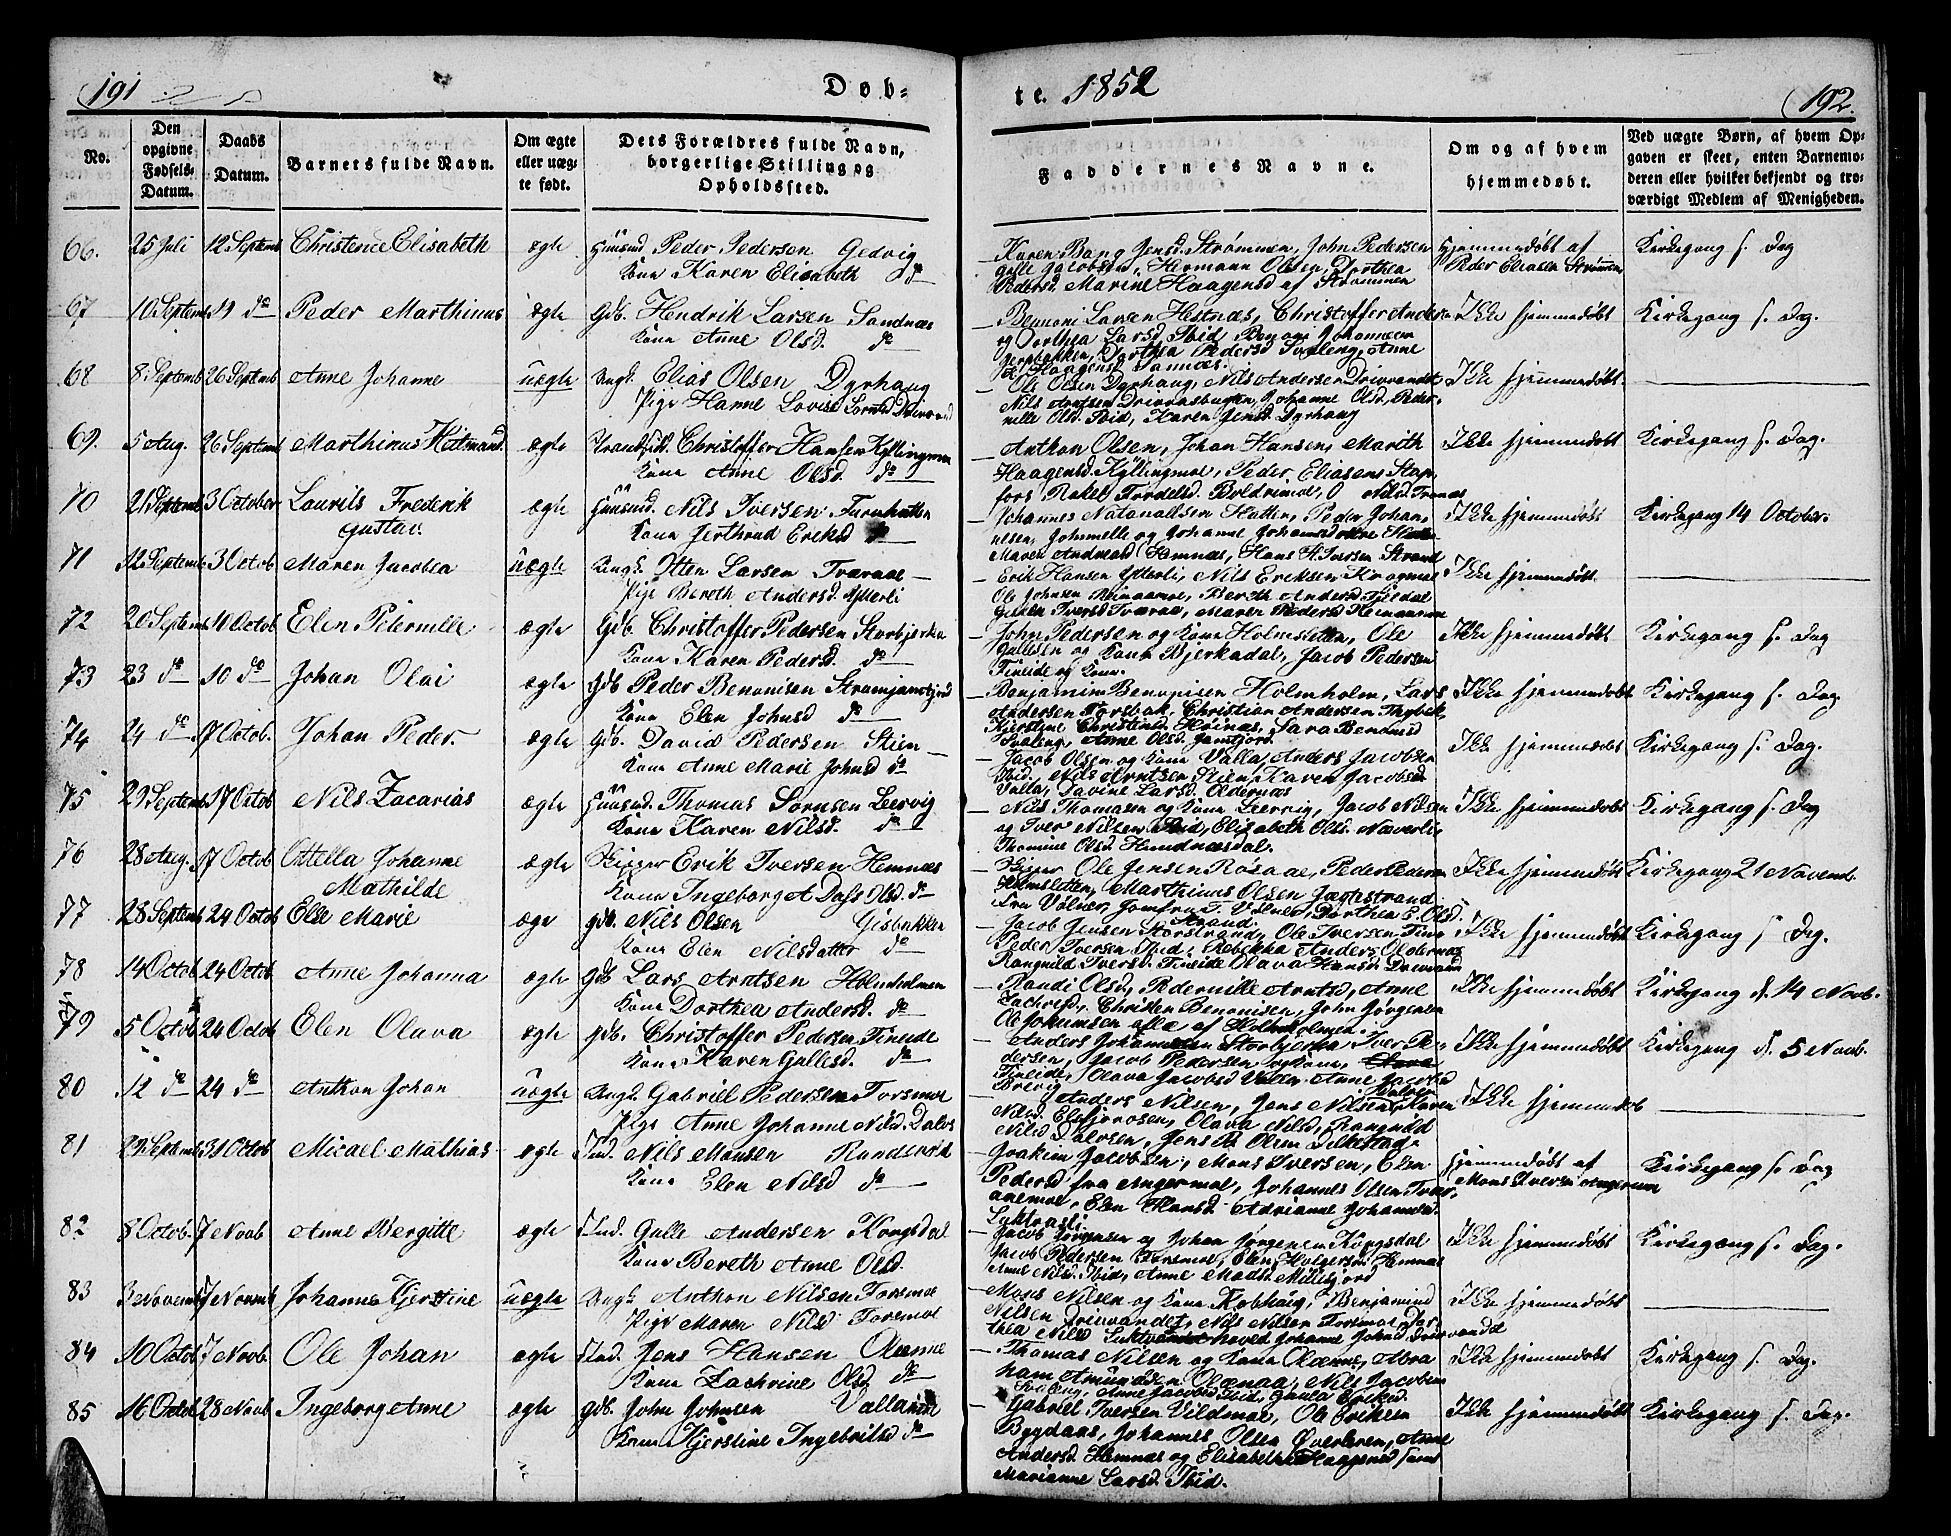 191
Døb-
te. 1852
192.
No.
Den opgivne Fødsels-Datum.
Daabs Datum.
Barnets fulde Navn.
Om ægte eller uæg-te født.
Dets Forældres fulde Navn, borgerlige Stilling og Opholdssted.
Faddernes Navne.
Om og af hvem hjemmedøbt.
Ved uægte Børn, af hvem Op-gaven er skeet, enten Barnemo-deren eller hvilket bekjendt og tro-værdigt Medlem af Menigheden.
66. 25 Juli 12 Septemb Christence Elisabeth ægte Huusmd. Peder Pedersen Gedvig
Kone Karen Elisabeth do
Karen Bang Jensd. Strømmen, John Pedersen
Gulle Jacobsen, Hermann Olsen, Dorthea
Pedersd. Marine Haagensd af Strømmen
Hjemmedøbt af
Peder Eliasen Strømmen
Kirkegang s. Dag
67 10 Septemb 19 do Peder Marthinus ægte Gdb. Hendrik Larsen Sandnæs
Kone Anne Olsd. do
Benoni Larsen Hestnæs, Christoffer Anders
og Dorthea Larsd. Ibid, Benoni Johannesen
Dorthea Pedersd Svaleng, Anne
Haagensd Sannæs.
Ikke hjemmedøbt
Kirkegang s. Dag.
68 8 Septemb 26 Septemb Anne Johanne uægte Ungk. Elias Olsen Dyrhaug
Pige Hanne Lovise Sørnsd Drivvand
Ole Olsen Dyrhaug, Nils Andersen Drivvandt
Nils Arntsen Johanne Olsd, Peder-
nille Olsd. Ibid, Karen Jensd. Dyrhaug
Ikke hjemmedøbt
69. 5 Aug. 26 Septemb Marthinus Hitmand. ægte Strandsidd. Christoffer Hansen Kyllingmoe
Kone Anne Olsd. do
Anthon Olsen, Johan Hansen, Marith
Haagensd. Kyllingmoe, Peder Eliasens
Rakel Tordelsd. Boldrimoe, Nilsd. Tranes
Ikke hjemmedøbt
Kirkegang s. Dag.
70 21 Septemb 3 October Laurits Frederik ægte Huusmd. Nils Iversen
Gustav. Kone Jerthrud Eriksd do
Johannes Natanaelsen Hatten, Peder Johan-
nesen,
Maren Andreasd Hemnæs, Hans H. Iversen Strand
Ikke hjemmedøbt
Kirkegang 14 October.
71 12 Septemb 3 Octob Maren Jacobea uægte Ungk. Otten Larsen Tværaae
Pige Bereth Andersd. Ytterli
Erik Hansen Ytterli, Nils Eriksen Krogmoe
Ole Johnsen Bereth Andersd.
Iversd Tværaa, Maren Pedersd
Ikke hjemmedøbt.
72 20 Septemb 10 Octob Elen Peternille ægte Gdb. Christoffer Pedersen Storbjerka
Kone Karen Pedersd. do
John Pedersen og Kone Holmsletten, Ole
Gullesen og Kone Bjerkadal, Jacob Pedersen
Fineide og Kone
Ikke hjemmedøbt
Kirkegang s. Dag
73 23 do 10 do Johan Olai ægte Gdb Peder Benonisen
Kone Elen Johnsd do
Benjamin Benonisen Holmholm, Lars
Andersen Forsbak, Christian Andersen Thybek
Kjerstine Christensd. Høinæs, Sara Benonisd
Svaleng, Anne Olsd. Jamtfjord
Ikke hjemmedøbt
Kirkegang s. Dag
74 24 do 17 Octob. Johan Peder. ægte Gdb. David Pedersen Stien
Kone Anne Marie Johnsd do
Jacob Olsen og Kone Valla, Anders Jacobsen
Ibid. Nils Arntsen Stien, Karen Jacobsd
Valla, Javine Larsd. Oldernæs
Ikke hjemmedøbt
Kirkegang s. Dag.
75 29 Septemb 17 Octob Nils Zacarias ægte Huusmd. Thomas Sørnsen Leervig
Kone Karen Nilsd. do
Nils Thomasen og Kone Leervig, Jacob Nilsen
og Iver Nilsen Ibid, Elisabeth Olsd. Næverli
Thomine Olsd. Hemnæsdal.
Ikke hjemmedøbt
Kirkegang s. Dag
76 28 Aug. 17 Octob Ottella Johanne ægte Skipper Erik Iversen Hemnæs
Mathilde Kone Ingeborg A Dass Olsd. do
Skipper Ole Jensen Røsaae, Peder Pedersen
Holmsletten, Marthinus Olsen Jægtestrand
Fru Vilner, Jomfru T. Vilner, Dorthea E. Olsd.
Strand
Ikke hjemmedøbt
Kirkegang 21 Novemb.
77 28 Septemb 24 Octob Else Marie ægte gdb. Nils Olsen Gisbakken
Kone Elen Nilsdatter do
Jacob Jensen Storstrand, Ole Iversen
Peder Iversen Ibid, Rebekka Anders. Oldernæs
Rangnild Iversd. Fineide Olava Hansd. Drivvand
Ikke hjemmedøbt
Kirkegang s Dag.
78 14 Octob 24 Octob Anne Johanna ægte Gdb Lars Arntsen Holmholmen
Kone Dorthea Andersd. do
Randi Olsd, Pedernille Arntsd, Anne
Zachrisd, Christen Benonisen, John Jørgensen
Ole Jokumsen alle af Holmholmen.
Ikke hjemmedøbt
Kirkegang d. 14 Novb.
79 5 Octob 24 Octob Elen Olava ægte gdb. Christoffer Pedersen Fineide
Kone Karen Gullesd. do
Anders Johannesen Storbjerka Iver Pe-
dersen, Jacob Pedersen og Kone,
Fineide, Olava Jacobsd Vallen, Anne Jacobsd
Brevig
Ikke hjemmedøbt
Kirkegang d. 5 Novb.
80 12 do 24 do Anthon Johan uægte Ungk. Gabriel Pedersen Forsmoe
Pige Anne Johanne Nilsd. Dalos
Anders Nilsen, Jens Nilsen, Karen
Nilsd. Olava Nilsd, Rangnild
Nilsd Dalosen, Jens P. Olsen
Ikke hjemmedøb
81 29 Septemb 31 Octob Micael Mathias ægte Ind. Nils Monsen
Kone Elen Nilsd do
Joakim Jacobsen, Mons Iversen, Elen
Pedersd fra Angermoe, Johannes Olsen Tver-
aaemoe, Elen Hansd. Adrianne Johannesd.
Luktvasli
Hjemmedøbt af
Mons Iversen Angermoe
Kirkegang s. Dag
82 8 Octob. 7 Novb Anne Bergitte ægte Ind. Gulle Andersen Kongsdal
Kone Bereth Anne Olsd.
Jacob Jørgensen og Johan Jørgensen Kongsdal
Jacob Pedersen Forsmoe, Elen Holgersen Hemnæs
Anne Nilsd. Ibid, Anne Madsd. Millesjord
Ikke hjemmedøbt
Kirkegang s. Dag.
83 3 Novemb 7 Novemb Johanna Kjerstine uægte Ungk. Anthon Nilsen Forsmoe
Pige Maren Nilsd Forsmoe
Mons Nilsen og Kone Kobhaug, Benjamin
Nilsen Drivvandet, Nils Nilsen Forsmoe, Dor-
thea Nilsd Johanne Johnsd. Drivvandet
Ikke hjemmedøbt
84 10 Octob 7 Novb. Ole Johan ægte Ind. Jens Hansen Olænne
Kone Zachrine Olsd do
Thomas Nilsen og Kone Olænne, Abra
ham Amundsen Olænaa, Nils Jacobsen
Svaleng, Anne Jacobsd Ibid,
Ikke hjemmedøbt
Kirkegang s. Dag.
85 16 Octob 28 Novb Ingeborg Anne ægte gdb. John Johnsen Valla
Kone Kjerstine Ingebritsd do
Gabriel Iversen Vildmoe, Ole Eriksen
Bygdaas, Johannes Olsen Øverleren, Anne
Andersd. Hemnæs og Elisabeth Haagensd samt
Marianne Larsd. Ibid.
Ikke hjemmedøbt
Kirkegang s. Dag.